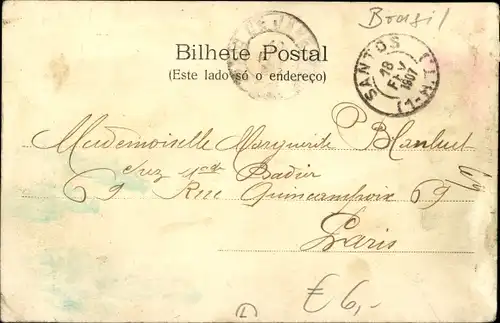 Brasil
Bilhete Postal
(Este lado só o endereço)
SANTOS
18
FEV
1907
Mademoiselle Marguerite
chez Mr Badier
69 Rue Quincampoix 69
Paris
€ 6,-
L